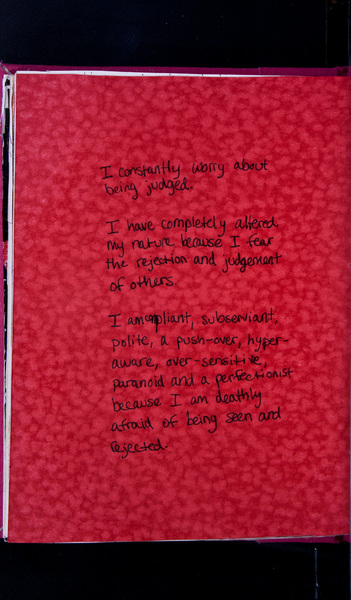 I constantly worry about
being judged.
I have completely altered
my nature because I fear
the rejection and judgement
of others.
I am compliant, subserviant,
polite, a push-over, hyper-
aware, over-sensitive,
paranoid and a perfectionist
because I am deathly
afraid of being seen and
rejected.